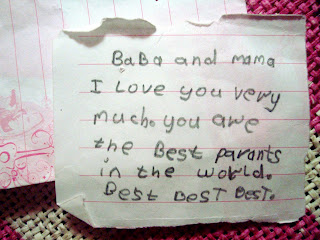 BaBa and mama
I Love you very
much. you are
the Best parants
in the world.
Best Best Best.